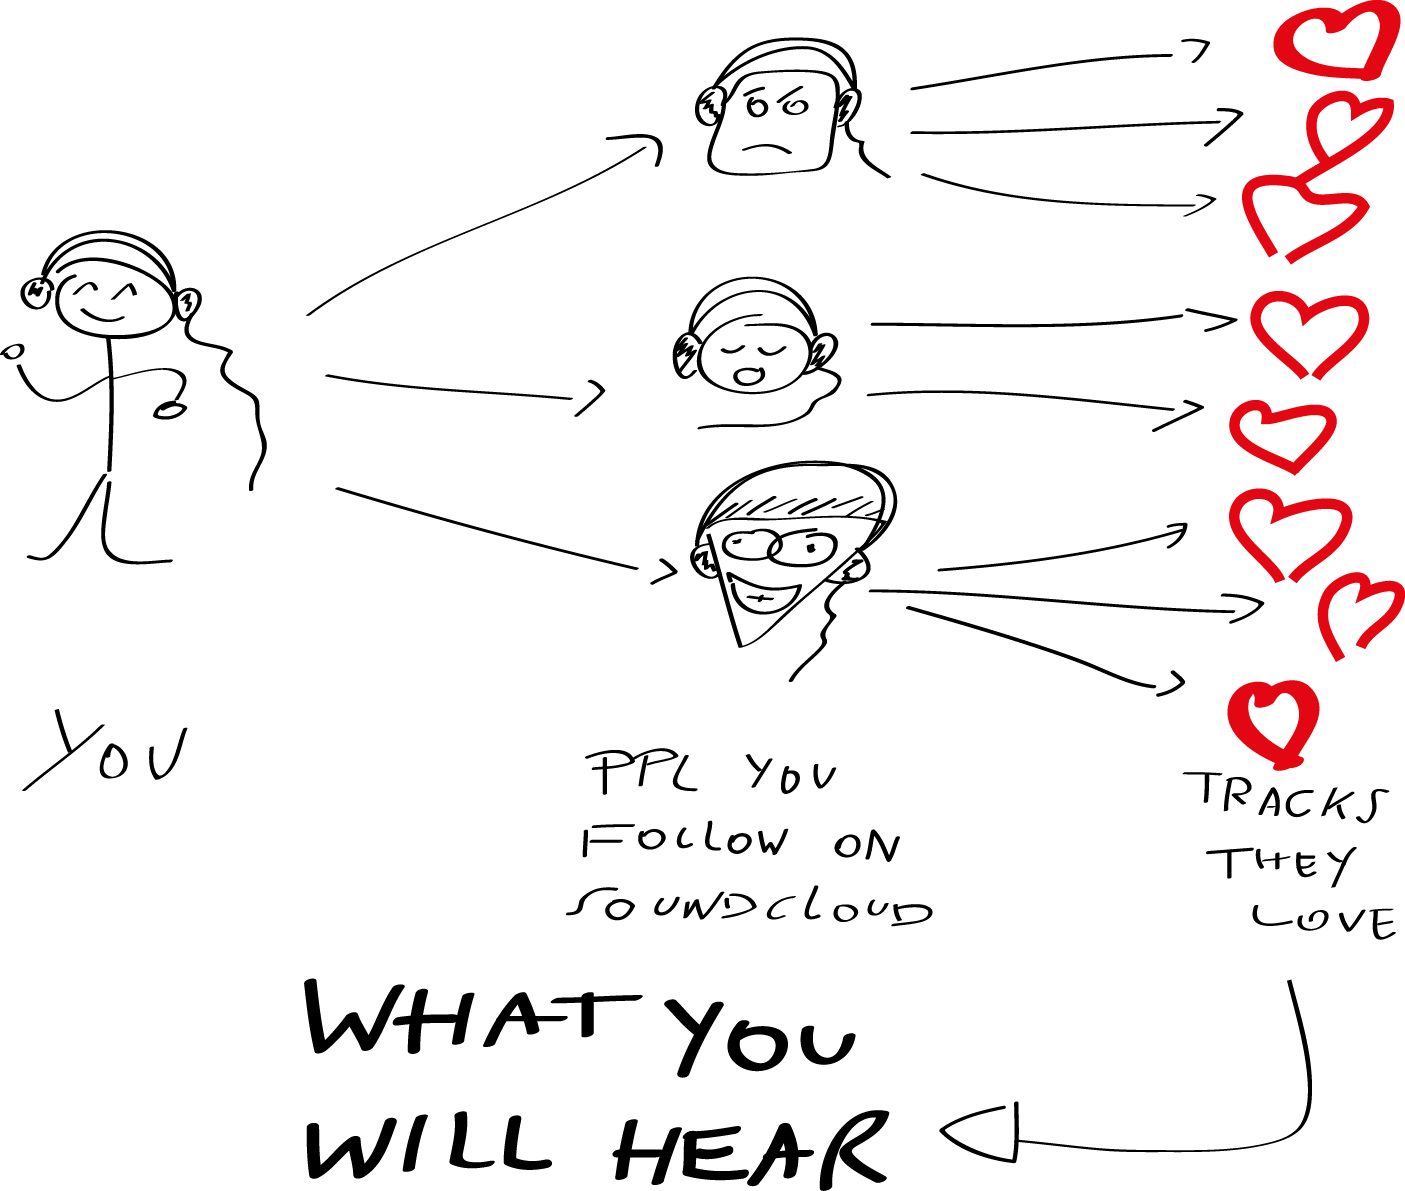 YOU
PPL YOU
FOLLOW ON
SOUNDCLOUD
TRACKS
THEY
LOVE
WHAT YOU
WILL HEAR